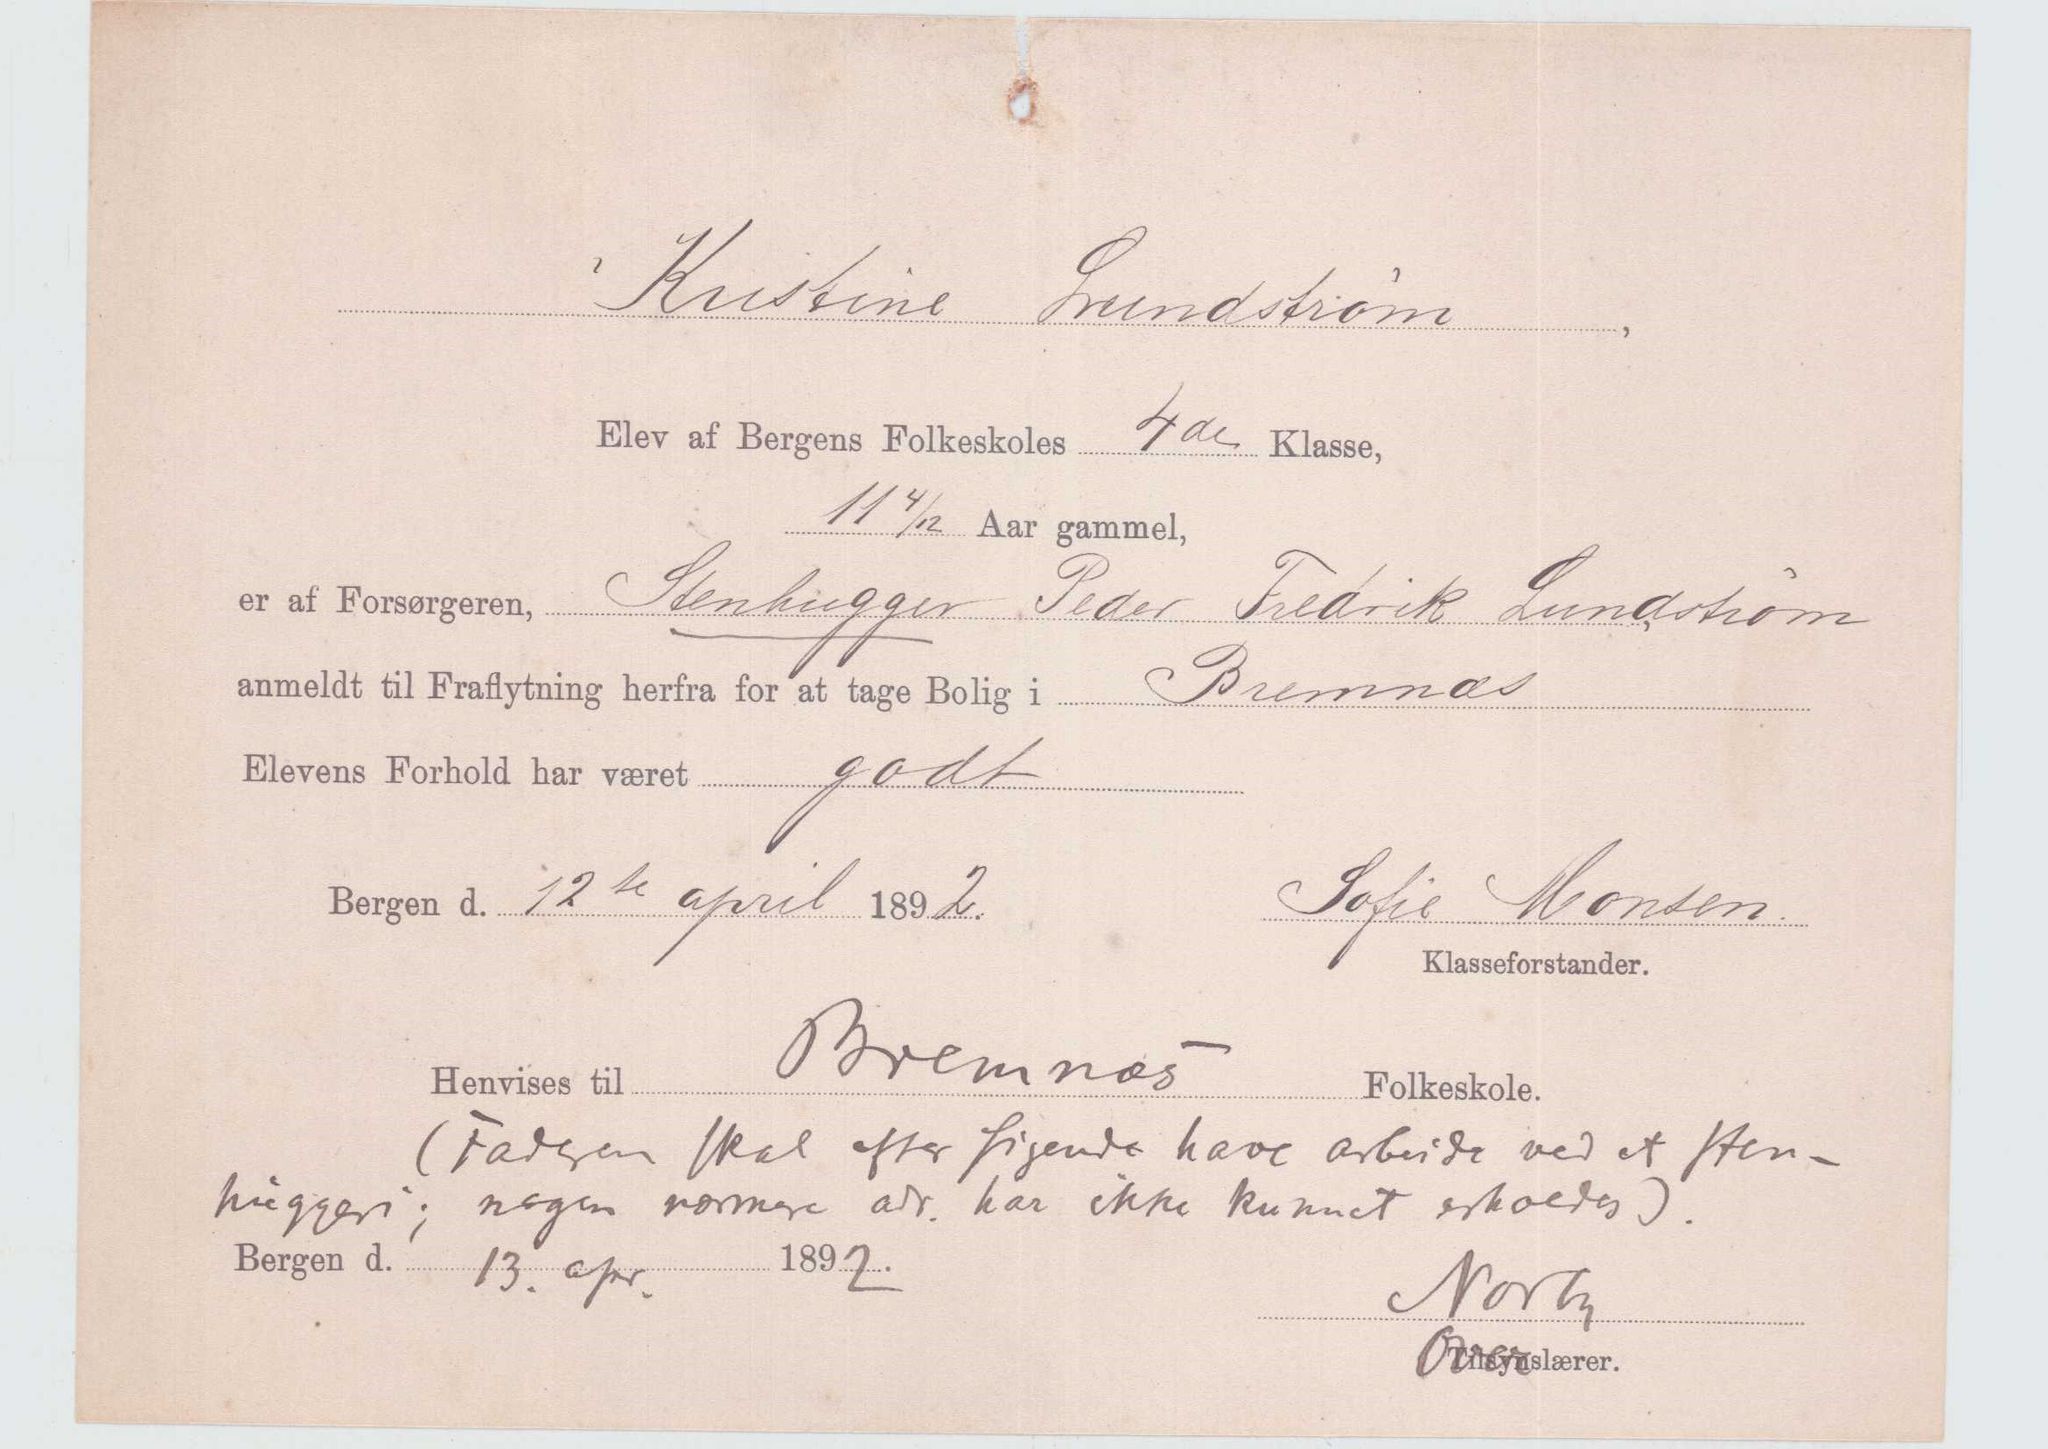 Kristine Lundström,
Elev af Bergens Folkeskoles 4de Klasse,
11 4/12 Aar gammel,
er af Forsørgeren, Stenhugger Peder Fredrik Lundström
anmeldt til Fraflytning herfra for at tage Bolig i Bremnæs
Elevens Forhold har været godt
Bergen d. 12te april 1892. Sofie Monsen.
Klasseforstander.
Henvises til Bremnæs Folkeskole.
(Faderen skal efter sigende have arbeide ved et sten-
huggeri; nogen nærmere adr. har ikke kunnet erholdes).
Bergen d. 13. apr. 1892.
Norby
Overlærer.